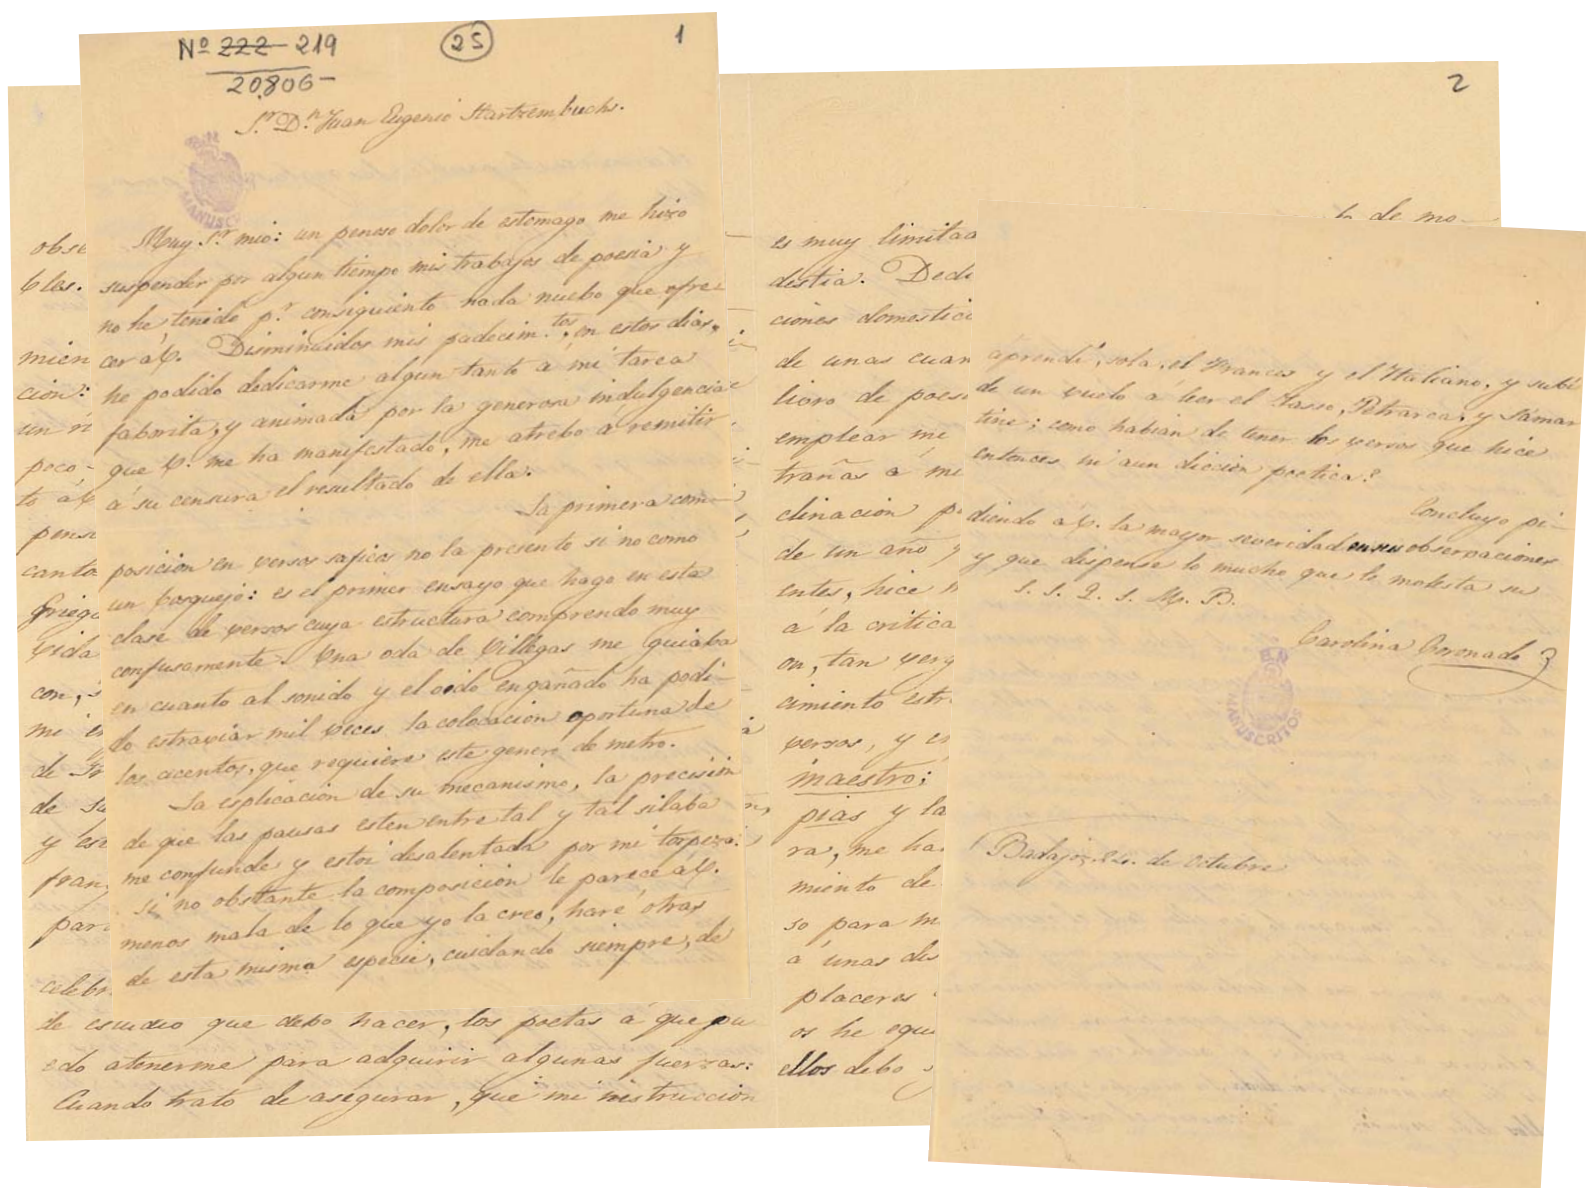 Nº 222 219
20.806
25
1
S.r D.n Juan Eugenio Hartzembuchs.
BN
MANUSC
Muy S.r mio: un penoso dolor de estomago me hizo
suspender por algun tiempo mis trabajos de poesia y
no he tenido p.r consiguiente nada nuebo que ofre-
cer á V. Disminuidos mis padecim.tos, en estos dias,
he podido dedicarme algun tanto á mi tarea
faborita, y animada por la generosa indulgencia
que V. me ha manifestado, me atrebo a remitir
á su censura el resultado de ella.
La primera com-
posicion en versos saficos no la presento si no como
un bosquejo: es el primer ensayo que hago en esta
clase de versos cuya estructura comprendo muy
confusamente. Una oda de Villegas me guiaba
en cuanto al sonido y el oido engañado ha podi-
do estraviar mil veces la colocacion oportuna de
los acentos, que requiere este genero de metro.
La esplicacion de su mecanismo, la precision
de que las pausas esten entre tal y tal silaba
me confunde y estoi desalentada por mi torpeza:
si no obstante la composicion le parece á V.
menos mala de lo que yo la creo, haré otras
de esta misma especie, cuidando siempre, de
obse
bles.
mien
cion:
un ri
poco
to á V
pens
canta
griego
vida
con,
mi en
de
de su
y es
fran
par
celebr
de estudio que debo hacer, los poetas á que pu
edo atenerme para adquirir algunas fuerzas:
Cuando trato de asegurar, que mi instruccion
2
de mo-
es muy limitad
destia. Dedi
ciones domestic
de unas cuan
libro de poes
emplear mi
trañas á mi
clinacion p
de un año y
entes, hice
á la critica
on, tan verg
cimiento estr
versos, y
maestro;
pias y la
ra, me ha
miento de
so para m
á unas des
placeres
os he
ellos debo
aprendí, sola, el Frances y el Italiano, y subí
de un vuelo á leer el Tasso, Petrarca, y Lamar
tine; como habian de tener los versos que hice
entonces ni aun diccion poetica?
Concluyo pi-
diendo á V. la mayor severidad en sus observaciones
y que dispense lo mucho que le molesta su
S. S. Q. S. M. B.
Carolina Coronado
BN
MANUSCRITOS
Badajoz 24. de Octubre